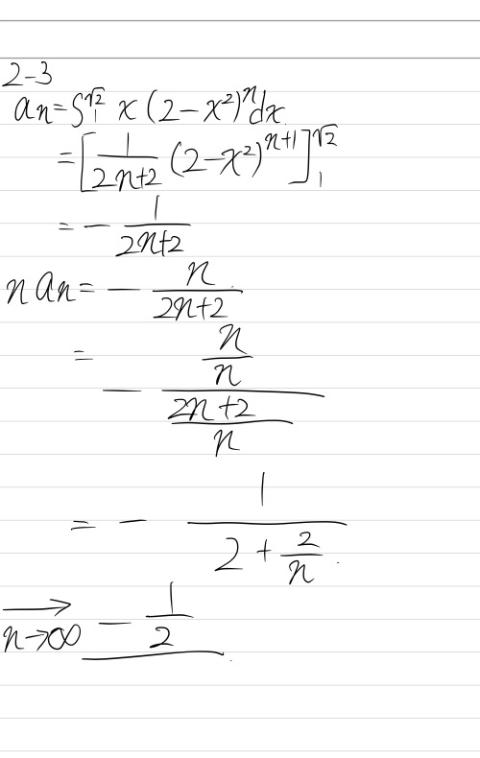 2-3
an=∫₁^√2 x(2-x²)ⁿdx
=[1/(2n+2) (2-x²)ⁿ⁺¹]₁^√2
=-1/(2n+2)
n an=-n/(2n+2)
=-(n/n)/((2n+2)/n)
=-1/(2+2/n).
→n→∞ -1/2.